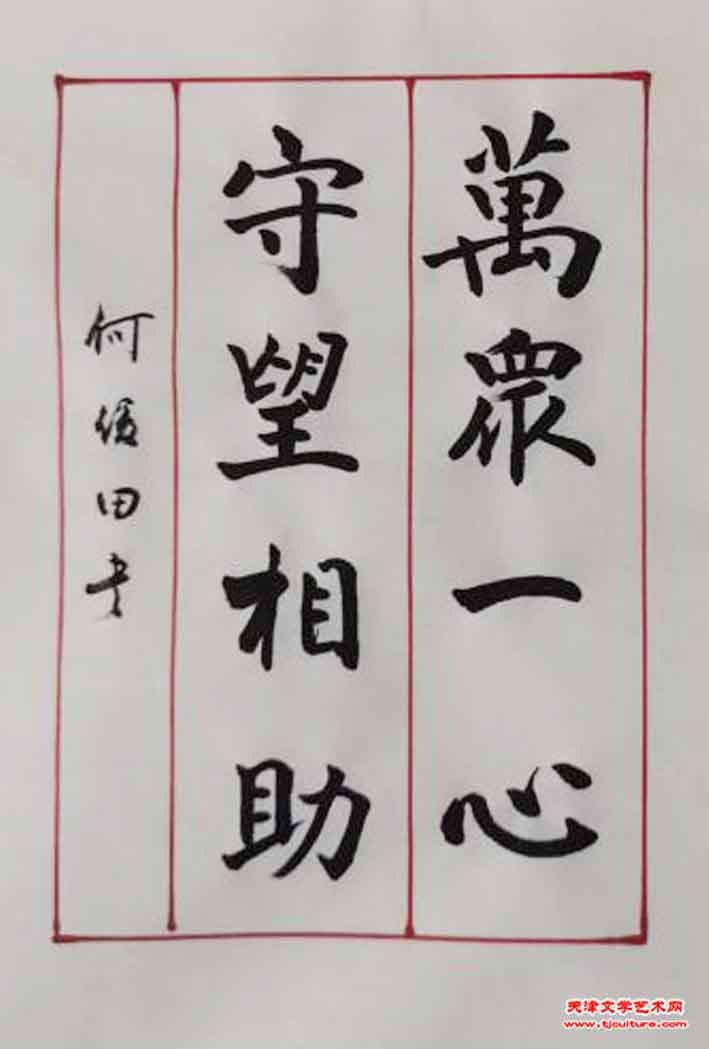 萬眾一心
守望相助
何俊田书
天津文学艺术网
www.tjculture.com